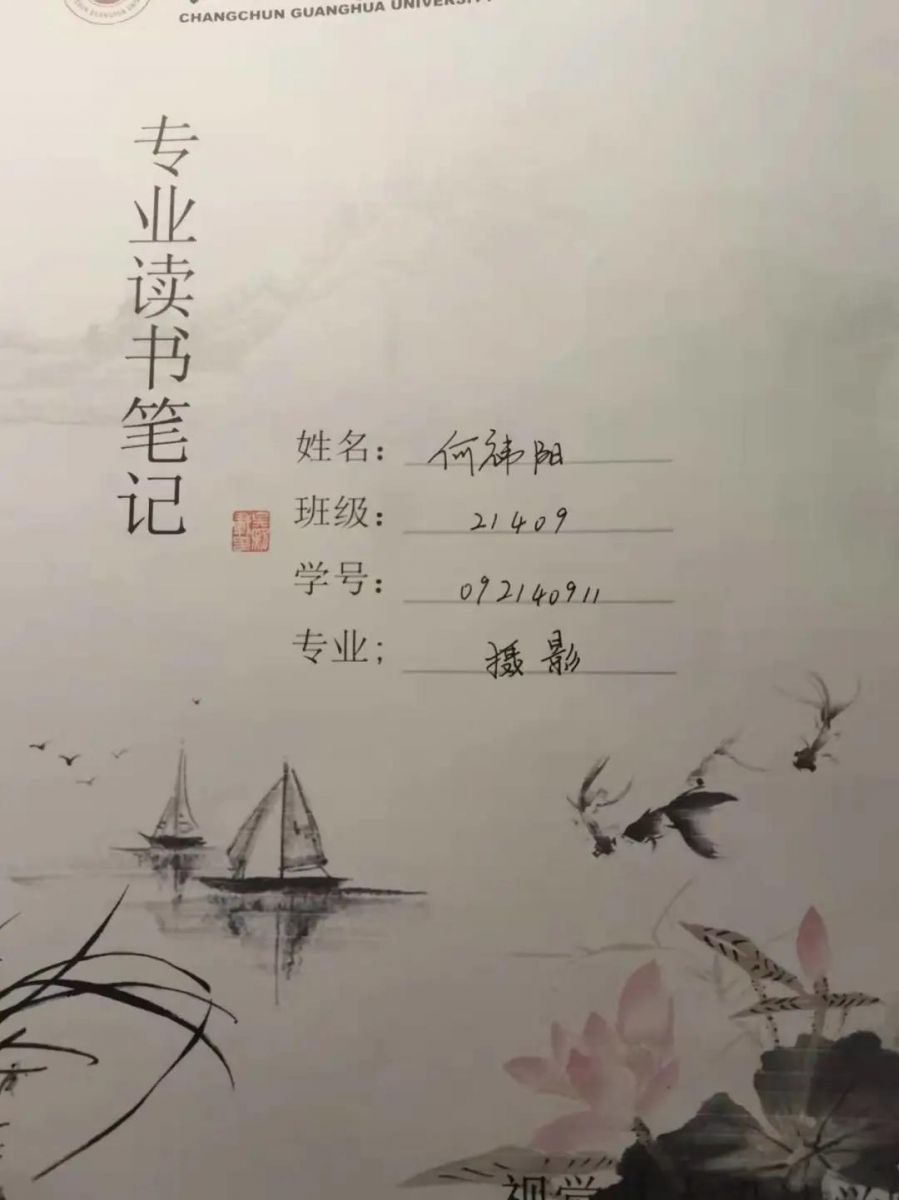 CHANGCHUN GUANGHUA UNIVERSITY
专业读书笔记
姓名：何祎阳
班级：21409
学号：092140911
专业；摄影
视觉